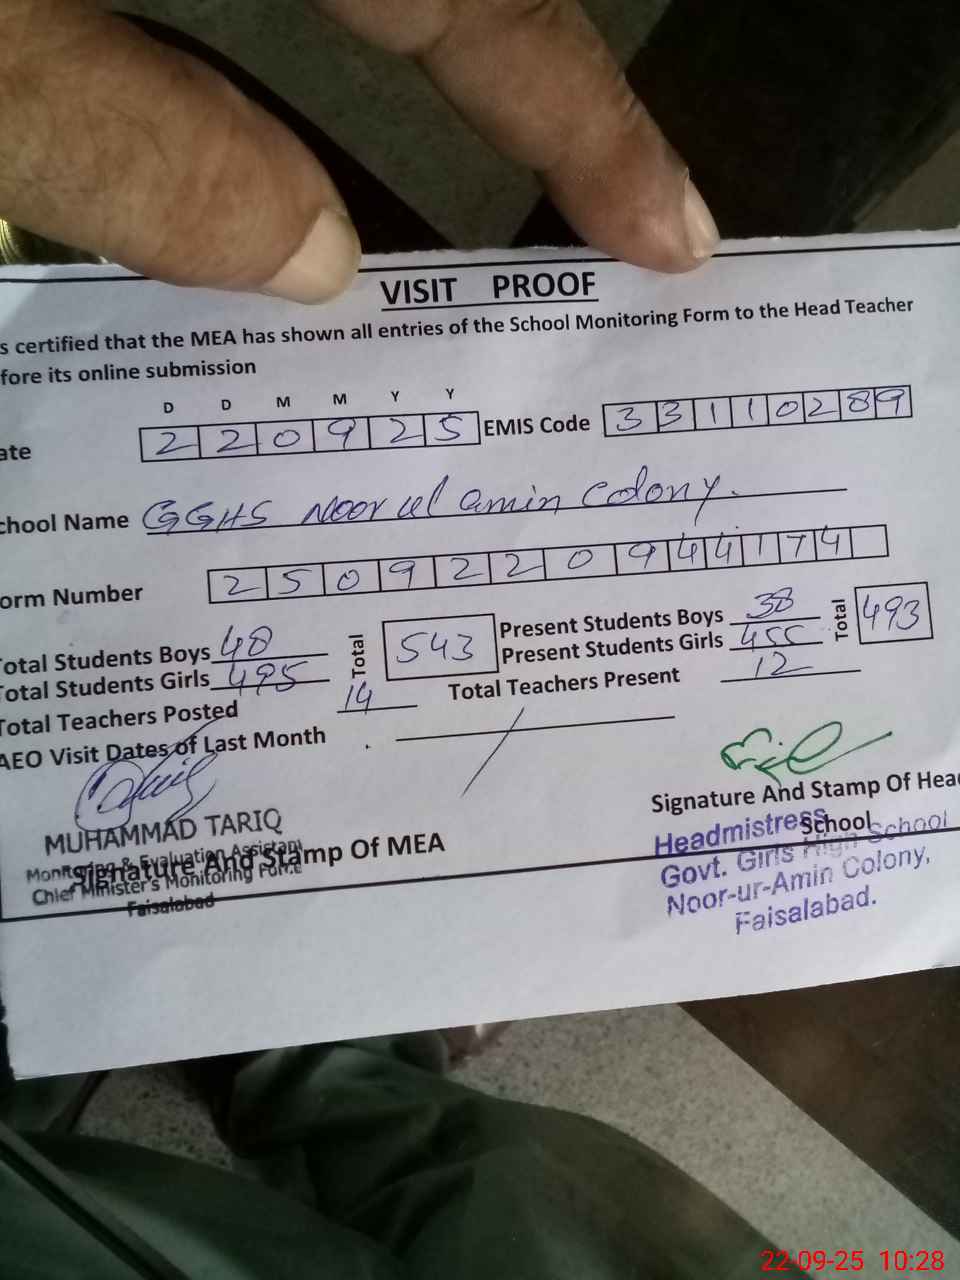 VISIT PROOF
s certified that the MEA has shown all entries of the School Monitoring Form to the Head Teacher
fore its online submission
D D M M Y Y
ate 2 2 0 9 2 5 EMIS Code 3 3 1 1 0 2 8 9
chool Name GGHS Noor ul amin Colony.
orm Number 2 5 0 9 2 2 0 9 4 4 1 7 4
Total Students Boys 48 Total 543 Present Students Boys 38 Total 493
Total Students Girls 495 Present Students Girls 455
Total Teachers Posted 14 Total Teachers Present 12
AEO Visit Dates of Last Month
MUHAMMAD TARIQ
Monitoring & Evaluation Assistant
Chief Minister's Monitoring Force
Faisalabad
Signature And Stamp Of MEA
Signature And Stamp Of Head
School
Headmistress
Govt. Girls High School
Noor-ur-Amin Colony,
Faisalabad.
22-09-25 10:28